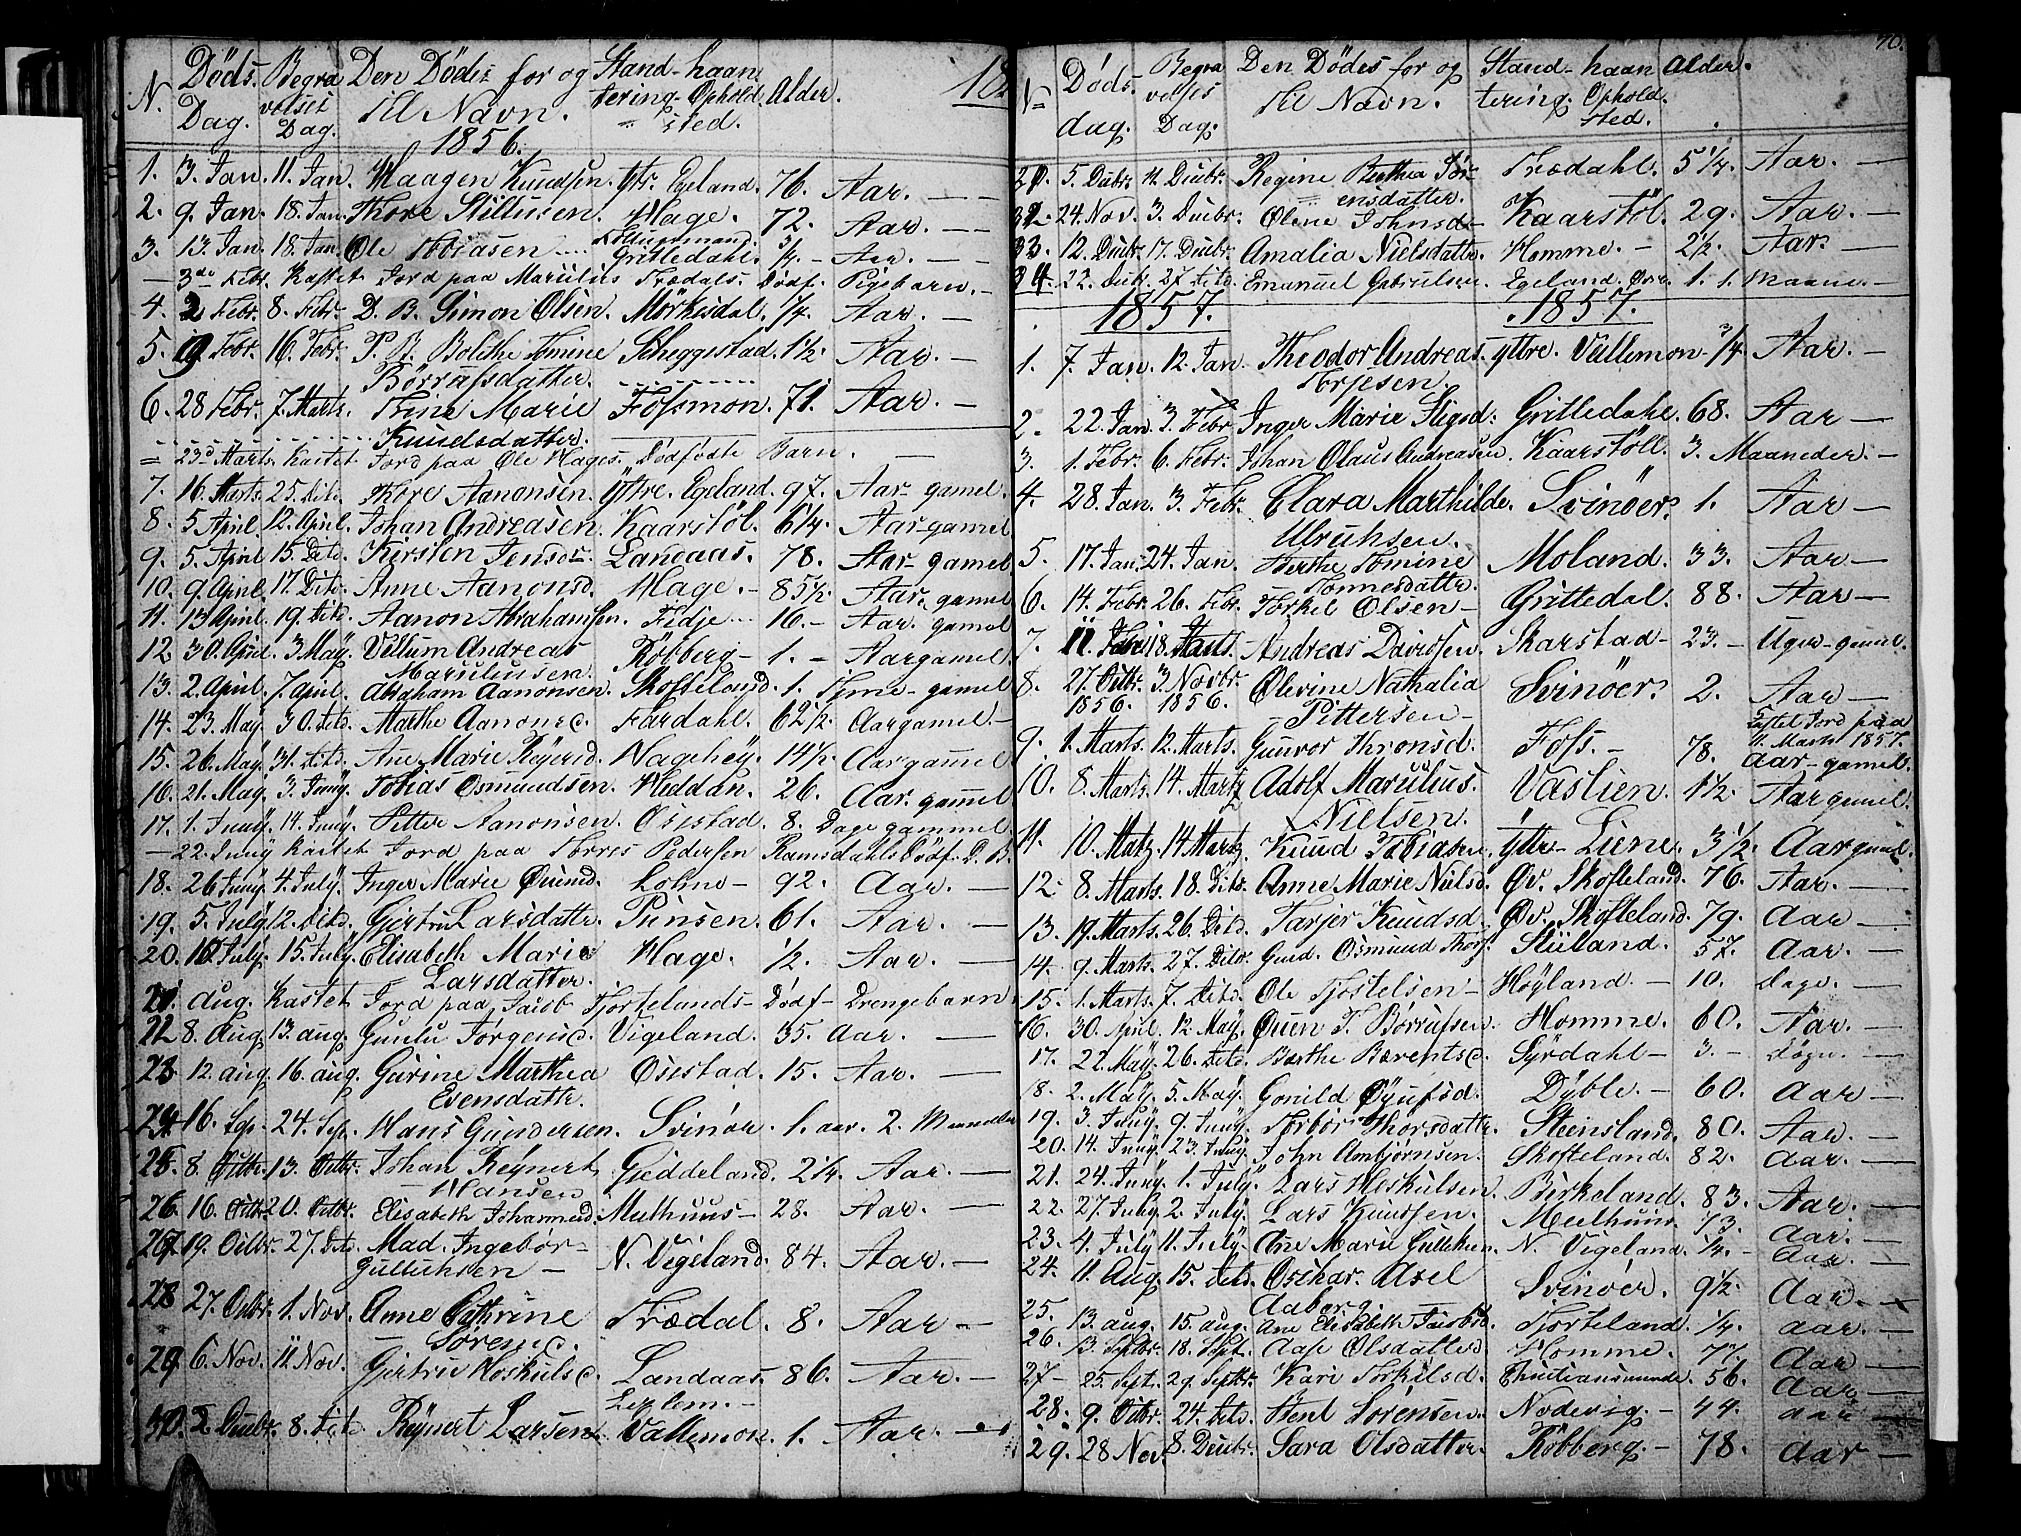 N. Döds Dag. Begravelses Dag. Den Dödes for og Til Navn. Stand-haantering Ophold sted. Alder.
1856.
1. 3. Jan. 11. Jan. Haagen Knudsen. Ytr. Egeland. 76. Aar. —
2. 9. Jan. 18. Jan. Thore Hage. 72. Aar. —
3. 13. Jan. 18. Jan. Ole Tobiasen Grittedahl. 3/4 - Aar. —
— 3de Febr. Kastet Jord paa Marulius Trædals. Dödf. Pigebarn. —
4. 2 Febr. 8. Febr. D. B. Simon Olsen. Mörkisdal. 1/4. Aar. —
5. 9 Febr. 16. Febr. P. B. Bolethe Tomine Scheggestad. 1 1/2. Aar. —
Börrufsdatter.
6. 28 Febr. 7. Marts. Trine Marie Fossmon. 71. Aar. —
Knudsdatter.
= 23d Marts. Kastet Jord paa Ole Hages. Dödfödte Barn. —
7. 16. Marts. 25. Dito. Thore Aanonsen. Yttre. Egeland. 97. Aar gamel.
8. 5. April. 12. April. Johan Andreasen. Kaarstöl. 6 1/4. Aar gamel
9. 5. April 15. Dito. Kirsten Jensd. Landaas. 78. Aar gamel.
10. 9. April. 17. Dito. Anne Aanonsd. Hage. - 85 1/2. Aar. gamel
11. 13 April. 19. Dito. Aanon Abrahamsen. Fidje 16. - Aar. gamel
12 30. April. 3 May. Villum Andreas Röbberg - 1. - Aargamel
Mariliusen.
13. 2. April. 7. April. Abraham Aanonsen. Skofteland. 1. Time - gamel
14. 23. May. 30. Dito. Marthe Aanonsd. Fardahl. 62 1/2. Aargamel. —
15. 26. May. 31. Dito. Ane Marie Reyersd. Hagehöy. 14 1/2. Aargamel
16. 21. May. 3. Juny. Tobias Osmundsen. Heddan. 26. Aar. gamel
17. 1. Juny. 14. Juny. Petter Aanonsen. Osestad. 8. Dage gammel.
— 22. Juny Kastet Jord paa Torres Pedersen Ramsdahls Dödf. D. B.
18. 26 Juny. 4. July. Inger Marie Lohne - 92. Aar. —
19. 5. July. 12. Dito. Gjertru Larsdattr. Punsen. 61. Aar. —
20. 10 July. 15. July. Elisabeth Marie Hage. 1/2. Aar. —
Larsdatter.
21. Aug. Kastet Jord paa Jacob Tjortelands - Dödf - Drengebarn.
22 8. Aug. 13. Aug. Gunlu Jörgensd. Vigeland. 35. Aar. —
23 12. Aug. 16. Aug. Gurine Marthea Osestad. 15. Aar. —
Evensdattr.
24 16. Sep. 24. Sep. Hans Gundersen. Svinör. 1. aar. 2. Maaneder
25. 8. Octbr. 13. Octbr. Johan Reynert Gieddeland. 2 1/4. Aar. —
Hansen
26 16. Octbr. 20. Octbr. Elisabeth Johannesd. Malhuus - 28. Aar. —
27 19. Octbr. 27. Dito. Mad. Ingebör - N. Vigeland. 84. Aar. —
Gulluhsen -
28 27. Octbr. 1. Nov. Anne Cathrine Trædal. 8. Aar —
Sörensd.
29 6. Nov. 11 Nov. Gjertru Hoskulsd. Landaas. 86. Aar. —
30. 2. Decbr. 8. Dito. Reynert Larsen. Vallemon. 1. Aar. —
18
70.
No Döds. dag. Begravelses Dag. Den Dödes for og Til Navn. Stand-haantering. Ophold. sted. Alder.
31. 5. Decbr. 11. Decbr. Regine Berthea Sörensdatter. Trædahl. 5 1/4. Aar. —
32. 24. Nov. 3. Decbr. Olene Johnsd. Kaarstöl. 29. Aar. —
33. 12. Decbr. 17. Decbr. Amalia Nielsdatter. Homme. - 2 1/2. Aar. —
34. 22. Decb. 27. Dito. Emanuel Gabrielsen. Egeland. Övr. 1. Maane. —
1857. 1857.
1. 7. Jan. 12. Jan. Theodor Andreas yttre. Vallemon - 3/4 Aar. —
Torjesen
2. 22. Jan. 3. Febr. Inger Marie Stigsd: Grittedahl. 68. Aar —
3. 1. Febr. 6. Febr. Johan Olaus Andreasen. Kaarstöll. 3. Maaneder. —
4. 28. Jan. 3. Febr. Clara Marthilde. Svinöer. 1. Aar —
Ulrichsen.
5. 17. Jan. 24. Jan. Berthe Tomine Moland. 33. Aar —
Tonnesdattr.
6. 14. Febr. 26. Febr. Torkel Olsen - Grittedal. 88. Aar —
7. 11. Febr. 18. Marts. Andreas Davidsen. Skarstad - 23. - Uger - gamel.
8. 27. Octbr. 3. Novbr. Olevine Nathalia Svinöer. 2. Aar —
1856. 1856. Pittersen - Kastet Jord paa
9. 1. Marts. 12. Marts. Gunvor Thronsd. Foss. - 78. 11. Marts 1857.
Aar - gamel.
10. 8. Marts. 14. Martz Adolf Marulius. Vaslien. 4 1/2. Aar gamel.
Nielsen.
11. 10. Martz. 14 Martz. Knud Tobiasen. Yttr - Liene. 3 1/2. Aargamel.
12. 8. Marts. 18. Dito. Anne Marie Nielsd. Öv. Skofteland. 76. Aar. —
13. 19. Marts. 26. Dito. Tarjer Knudsd. Öv. Skofteland. 79. Aar —
14. 9. Marts. 27. Dito. Osmund Stuland. 57. Aar. —
15. 1. Marts. 7. Dito. Ole Tjostelsen - Höyland. - 10. Dage. —
16. 30. April. 12. May. Ouen T. Börrufsen. Homme. 60. Aar. —
17. 22. May. 26. Dito. Berthe Bærentsd. Syrdahl - 3. - Dögn. —
18. 2. May. 5. May. Gonild Oyufsd. Dyble. - 60. Aar —
19. 3. Juny. 9. Juny. Torbör Thorsdattr. Steensland. 80. Aar. —
20. 14. Juny. 23. Juny. John Ambjörnsen. Skofteland. 82. Aar. —
21. 24. Juny. 1. July. Lars Hoskulsen. Birkeland. 83. Aar. —
22. 27. July. 2. July. Lars Knudsen. Meelhuus 73. Aar. —
23. 4. July 11. July. Ane Marie Gulleksen. N. Vigeland. 1/4. - Aar —
24. 11. Aug. 15. Dito. Oschar. Axel Svinöer. 9 1/2. Aar. —
Aaberg.
25. 13. Aug. 15. Aug. Ane Elisabeth Jacobsd. Tjorteland. 1/4. Aar. —
26. 13. Septbr. 18. Sept. Aase Olsdatter. Homme. 77. Aar —
27 - 25. Sept. 29. Septbr. Kari Torkilsd. Christiansmunde. 56. Aar —
28. 9. Octbr. 24. Dito. Stenl Sörensen. Nodevig. - 49. Aar —
29. 28 Nov. 8. Decbr. Sara Olsdatter. Röbberg. - 78. Aar —